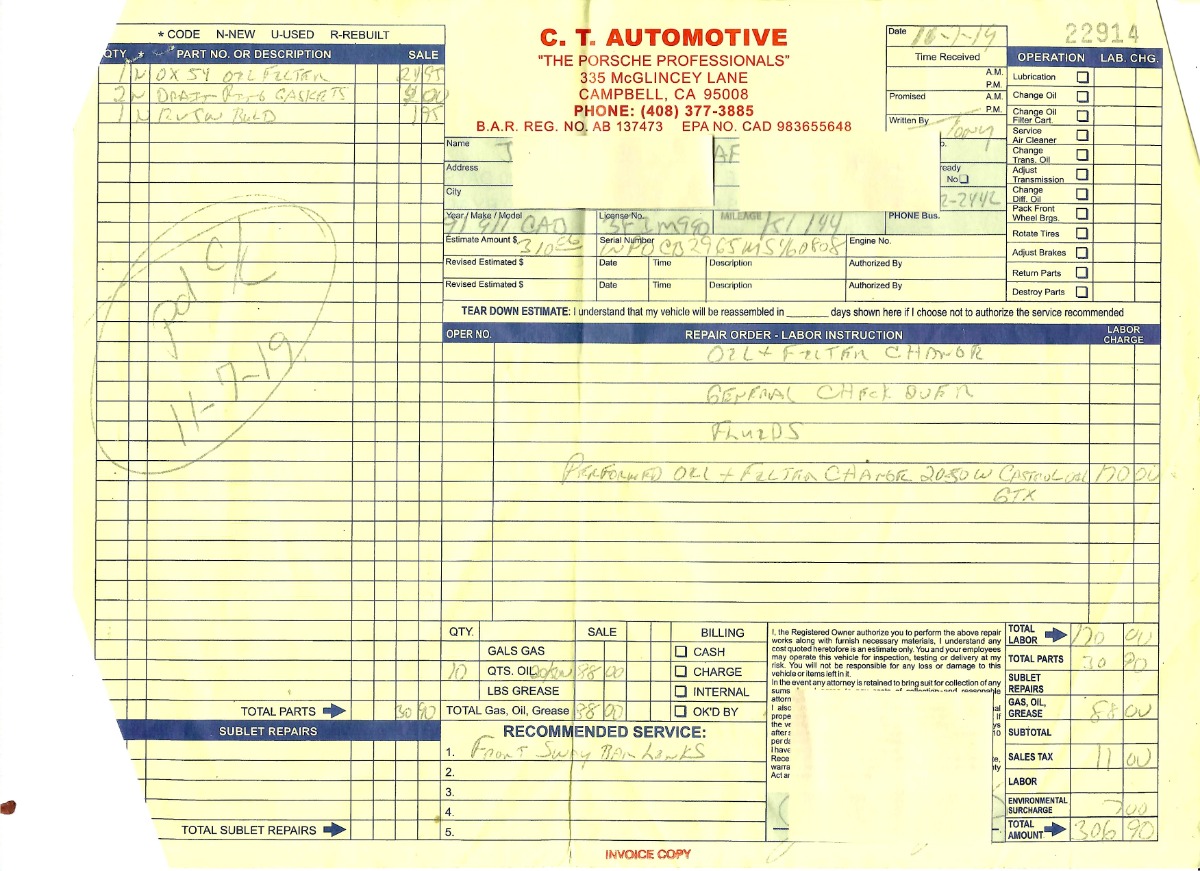 * CODE N-NEW U-USED R-REBUILT
QTY. * PART NO. OR DESCRIPTION SALE
1 N OX 54 OIL FILTER 24 95
2 N GASKETS 4 00
1 N 1 95
pd CK
11-7-19
C. T. AUTOMOTIVE
"THE PORSCHE PROFESSIONALS"
335 McGLINCEY LANE
CAMPBELL, CA 95008
PHONE: (408) 377-3885
B.A.R. REG. NO. AB 137473 EPA NO. CAD 983655648
Date 11-7-19
22914
Time Received
A.M.
P.M.
Promised A.M.
P.M.
Written By Tony
OPERATION LAB. CHG.
Lubrication
Change Oil
Change Oil
Filter Cart.
Service
Air Cleaner
Change
Trans. Oil
Adjust
Transmission
Change
Diff. Oil
Pack Front
Wheel Brgs.
Rotate Tires
Adjust Brakes
Return Parts
Destroy Parts
Name
Address
City
eady
No
2-2442
Year / Make / Model 91 911 CAB License No. MILEAGE 151144 PHONE Bus.
Estimate Amount $ 310 Serial Number Engine No.
Revised Estimated $ Date Time Description Authorized By
Revised Estimated $ Date Time Description Authorized By
TEAR DOWN ESTIMATE: I understand that my vehicle will be reassembled in ________ days shown here if I choose not to authorize the service recommended
OPER NO. REPAIR ORDER - LABOR INSTRUCTION LABOR CHARGE
OIL + FILTER CHANGE
GENERAL CHECK OVER
FLUIDS
PERFORMED OIL + FILTER CHANGE 20-50W CASTROL 170 00
GTX
TOTAL PARTS 30 90
SUBLET REPAIRS
TOTAL SUBLET REPAIRS
QTY. SALE
GALS GAS
10 QTS. OIL 88 00
LBS GREASE
TOTAL Gas, Oil, Grease 88 00
BILLING
CASH
CHARGE
INTERNAL
OK'D BY
RECOMMENDED SERVICE:
1. FRONT SWAY BAR LINKS
2.
3.
4.
5.
I, the Registered Owner authorize you to perform the above repair
works along with furnish necessary materials, I understand any
cost quoted heretofore is an estimate only. You and your employees
may operate this vehicle for inspection, testing or delivery at my
risk. You will not be responsible for any loss or damage to this
vehicle or items left in it.
In the event any attorney is retained to bring suit for collection of any
sums
attorn
I also
prope
the ve
after
per da
I have
Rece
warra
Act ar
TOTAL LABOR 170 00
TOTAL PARTS 30 90
SUBLET REPAIRS
GAS, OIL, GREASE 88 00
SUBTOTAL
SALES TAX 11 00
LABOR
ENVIRONMENTAL SURCHARGE 7 00
TOTAL AMOUNT 306 90
INVOICE COPY